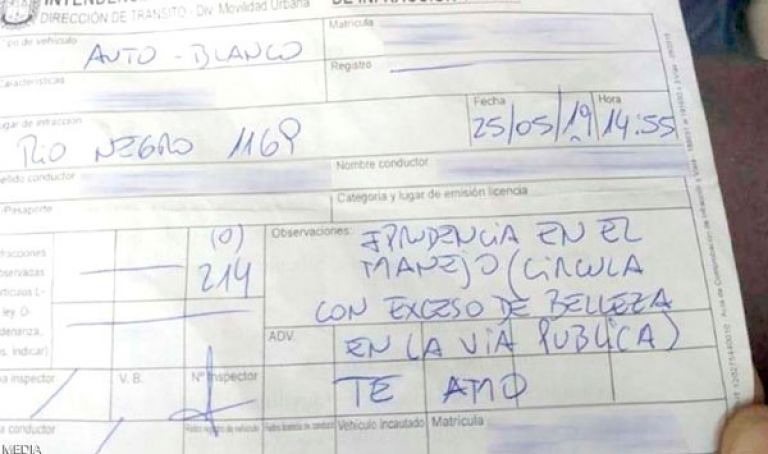 DIRECCIÓN DE TRÁNSITO - Div. Movilidad Urbana
DE INFRACCIÓN
Tipo de vehículo AUTO - BLANCO
Matrícula
Características
Registro
Lugar de infracción RIO NEGRO 1169
Fecha 25/05/19
Hora 14:55
conductor
Nombre conductor
Pasaporte
Categoría y lugar de emisión licencia
(0)
214
Observaciones: IPRUDENCIA EN EL
MANEJO (CIRCULA
CON EXCESO DE BELLEZA
EN LA VIA PUBLICA)
TE AMO
ADV.
indicar)
inspector
V. B.
Nº Inspector
conductor
Vehículo incautado
Matrícula
MEDIA